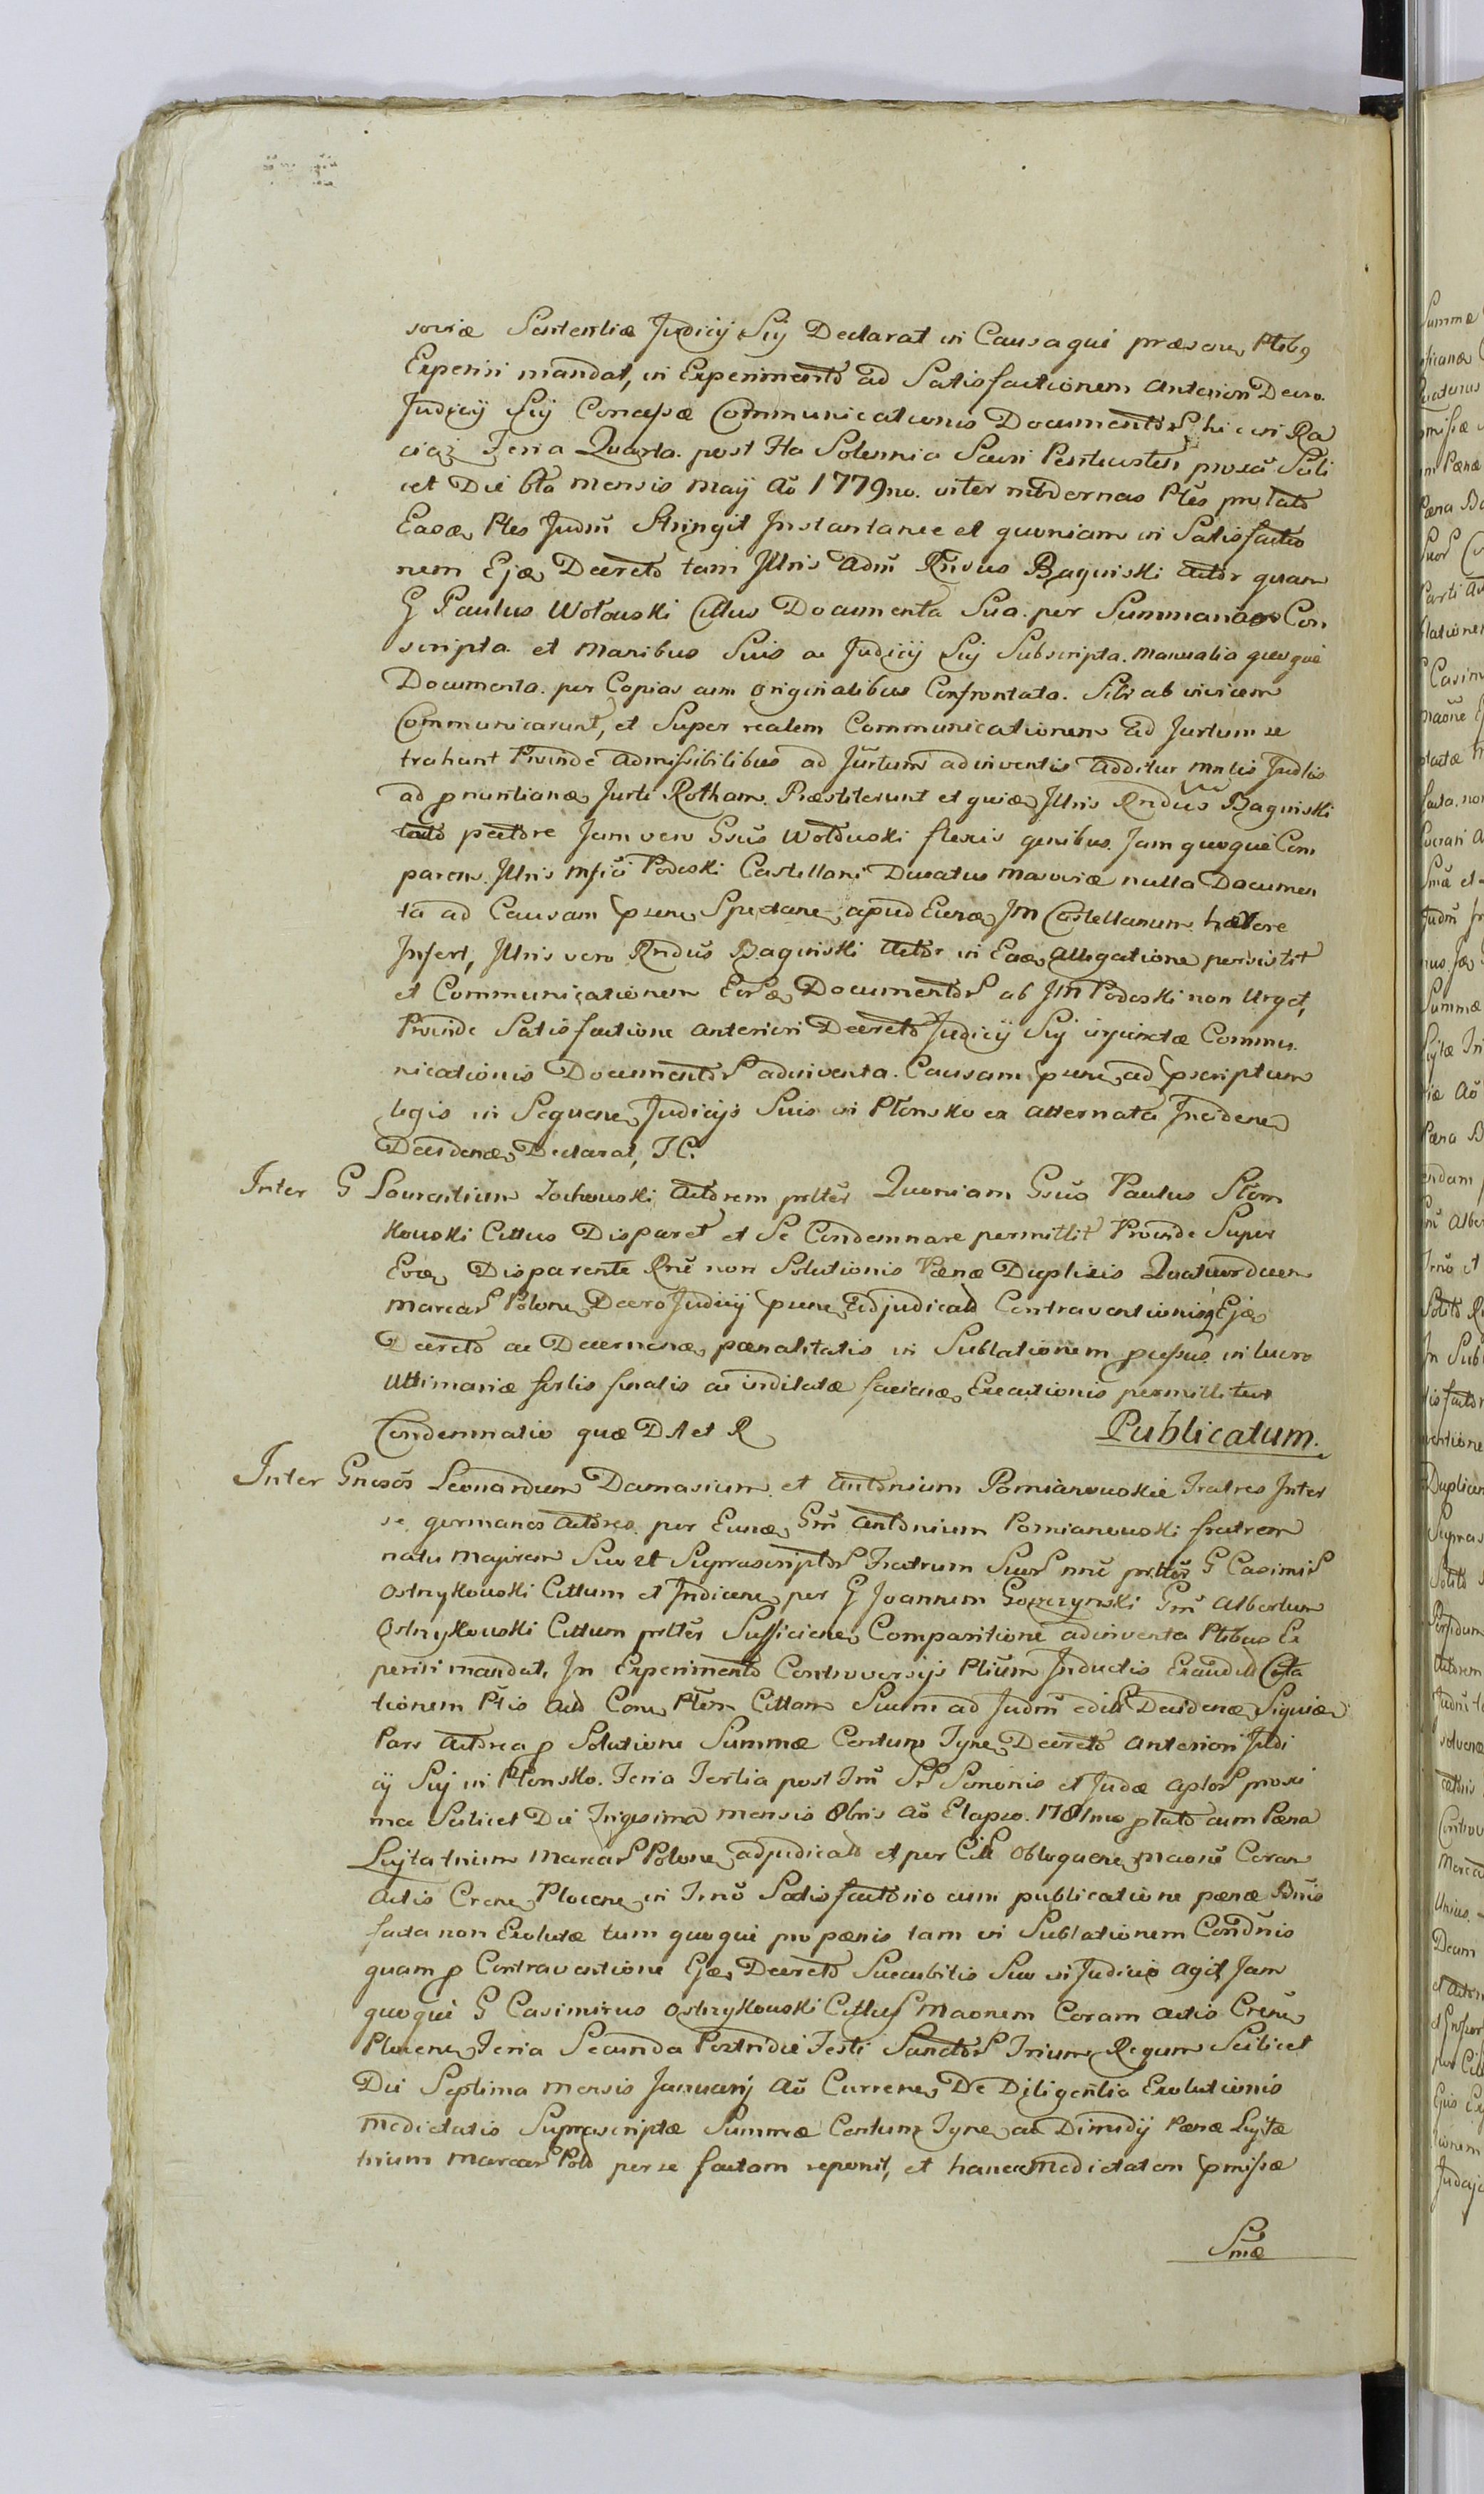 soviæ Sententiæ Judicij Sij Declarat in Causaqui præsen Ptibq
Experiri mandat, in Experimento ad Satisfactionem anteriori Decro
Judicij Sij Concessæ Communicationis Documentor hic in Ra
ciąż Feria Quarta post Fta Solennia Sacri Pentecostes proxa Scili
cet Die 6ta mensis Maij Aõ 1779no. inter modernas Ptes prolato
Easdæ Ptes Judm Stringit Instantanee et quoniam in Satisfactio
nem Ejdæ Decreto tam Jllris Adm Rndus Baginski Actor quam
G Paulus Wołowski Cittus Documenta Sua per Summarios Con
scripta et Manibus Suis ac Judicij Sij Subscripta Manualia quoqué
Documenta per Copias cum Originalibus Confrontata Sibi ab invicem
Communicarunt, et Super realem Communicationem ad Jurtum se
trahunt Proinde admissibilibus ad Jurtum adinventis additur Mnlis Judlis
ad pnuntianæ Jurti Rotham. Præstiterunt et quidæ Jllris Rndus Baginski
tacto pectore Jam vero Gsus Wołowski flexis genibus. Jam quoqué Com
parens Jllris Mfici Podoski Castellani Ducatus Masoviæ nulla Documen
ta ad Causam psen Spectane apud Eunæ JM Castellanum habere
Infert, Jllris vero Rndus Baginski Actor in Eadæ Allegatione persistit
et Communicationem Eordæ Documentor ab JM Podoski non Urget,
Proinde Satisfactione anteriori Decreto Judicij Sij injunctæ Commu
nicationis Documentor adinventa Causam psen ad pscriptum
legis in Sequen Judicijs Suis in Płonsko ex alternata Inciden
Decidendæ Declarat, J.C.
Inter G Laurentium Zochowski Actorem prltes Quoniam Gsus Paulus Słom
kowski Cittus Disparet et Se Condemnare permittit Proinde Super
Eodæ Disparente Rne non Solutionis Pænæ Duplicis Quatuordecem
Marcar Polon Decro Judicij psen Adjudicato Contraventionisq Ejdæ
Decreto ac Decernendæ pænalitatis in Sublationem pcessus in lucro
Ultimariæ sortis finalis ac inditatæ facienæ Executionis permittitur
Condemnatio quæ DA et R Publicatum.
Inter Gnosos Leonardum Damasium et Antonium Pomianowskie Fratres Inter
se germanos Actores per Eundæ Gm Antonium Pomianowski fratrem
natu Majorem Suo et Suprascriptor Fratrum Suor nne prltes G Casimir
Ostrzykowski Cittum et Indicen per G Joannem Goszczynski Gm Albertum
Ostrzykowski Cittum prltes Sufficien Comparitione adinventa Ptibus Ex
periri mandat, In Experimento Controversijs Ptium Inductis Exaudito Cita
tionem Ptis Acto Conn Ptem Cittam Suum ad Judm edit Decidendæ Siquidæ
Pars Actorea p Solutione Summæ Centum Tyne Decreto Anteriori Judi
cij Sij in Płonsko Feria Tertia post Fm SS Simonis et Judæ Aplor proxi
ma Scilicet Die Trigesima mensis 8bris Aõ Elapso 1781mo plato cum Pæna
Lujta trium Marcar Polon adjudicato et per Citt obloquen maone Coram
Actis Cren Plocen in Tmo Satisfactorio cum publicatione pænæ Bnis
facta non Exolutæ tum quoqué pro pænis tam in Sublationem Condnis
quam p Contraventione Ejdæ Decreto Succubitis Suo in Judicio agit, Jam
quoqué G Casimirus Ostrzykowski Cittus Maonem Coram Actis Cren
Plocen Feria Secunda Postridie Festi Sanctor Trium Regum Scilicet
Die Septima Mensis Januarij Aõ Curren De Diligentia Exolutionis
Medietatis Suprascriptæ Summæ Centum Tyne ac Dimidij Pænæ Lujtæ
trium Marcar Polo per se factam reponit, et hancce Medietatem pmissæ
Smæ